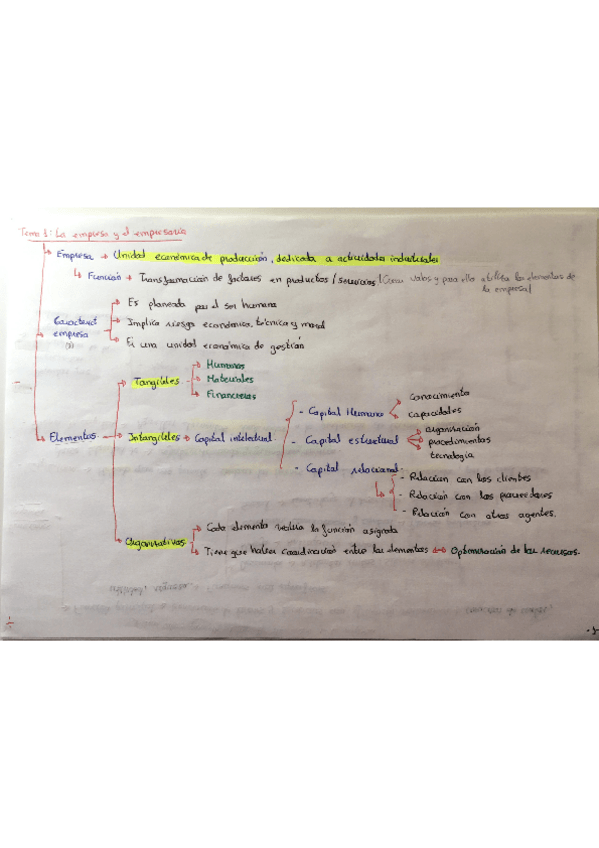 Tema 1: La empresa y el empresario
Empresa → Unidad económica de producción, dedicada a actividades industriales
Función → Transformación de factores en productos / servicios (Crear valor y para ello utiliza los elementos de
la empresa)
Caracterist
empresa
Es planeada por el ser humano
Implica riesgo económico, técnico y moral
Es una unidad económica de gestión
Elementos
Tangibles
Humanos
Materiales
Financieros
Intangibles → Capital intelectual
- Capital Humano
Conocimiento
Capacidades
- Capital estructural
organización
procedimientos
tecnología
- Capital relacional
- Relación con los clientes
- Relación con los proveedores
- Relación con otros agentes.
Organizativos
Cada elemento realiza la función asignada
Tiene que haber coordinación entre los elementos → Optimización de los recursos.